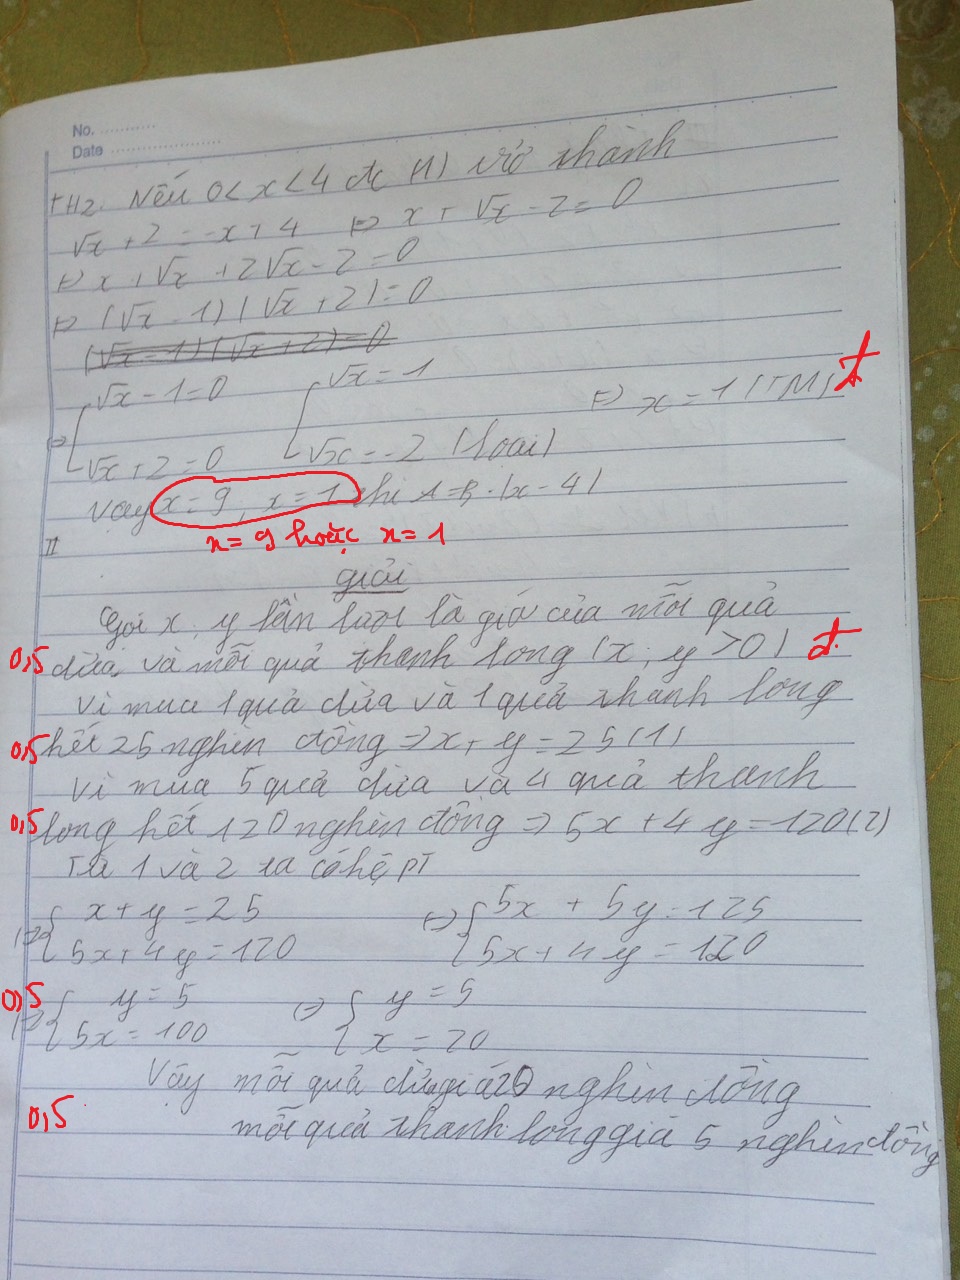 No. ............
Date ........................
+TH2. Nếu 0 < x < 4 đk (1) trở thành
√x + 2 = -x + 4 ⇔ x + √x - 2 = 0
⇔ x + √x + 2√x - 2 = 0
⇔ (√x - 1)(√x + 2) = 0
(√x - 1)(√x + 2) = 0
⇔ [ √x - 1 = 0 [ √x = 1 ⇔ x = 1 (TM) đ
√x + 2 = 0 √x = -2 (loại)
Vậy x = 9, x = 1 thì A = B.(x - 4)
x = 9 hoặc x = 1
II
giải
Gọi x, y lần lượt là giá của mỗi quả
0,5 dừa và mỗi quả thanh long (x, y > 0) đ.
Vì mua 1 quả dừa và 1 quả thanh long
0,5 hết 25 nghìn đồng ⇒ x + y = 25 (1)
Vì mua 5 quả dừa và 4 quả thanh
0,5 long hết 120 nghìn đồng ⇒ 5x + 4y = 120 (2)
Từ 1 và 2 ta có hệ PT
⇔ { x + y = 25 ⇔ { 5x + 5y = 125
5x + 4y = 120 5x + 4y = 120
0,5 ⇔ { y = 5 ⇔ { y = 5
5x = 100 x = 20
Vậy mỗi quả dừa giá 20 nghìn đồng
0,5 mỗi quả thanh long giá 5 nghìn đồng